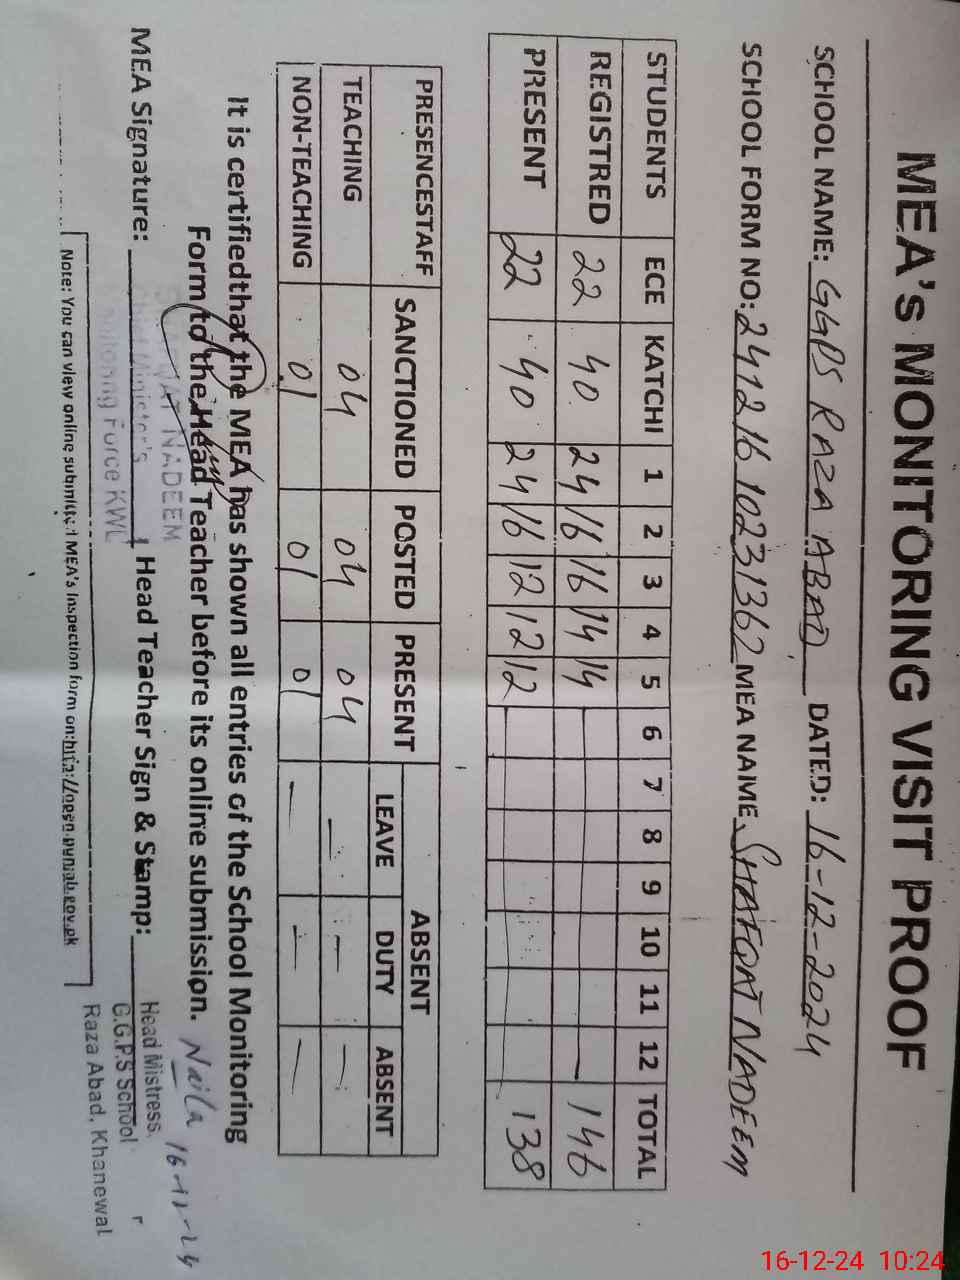 MEA's MONITORING VISIT PROOF
SCHOOL NAME: GGPS RAZA ABAD DATED: 16-12-2024
SCHOOL FORM NO: 24121610231362 MEA NAME SHAFQAT NADEEM
STUDENTS ECE KATCHI 1 2 3 4 5 6 7 8 9 10 11 12 TOTAL
REGISTRED 22 40 24 16 16 14 14 146
PRESENT 22 40 24 16 12 12 12 138
PRESENCESTAFF SANCTIONED POSTED PRESENT ABSENT
LEAVE DUTY ABSENT
TEACHING 04 04 04 - - -
NON-TEACHING 01 01 01 - - -
It is certifiedthat the MEA has shown all entries of the School Monitoring
Form to the Head Teacher before its online submission.
NADEEM
Chief Minister's
Monitoring Force KWL
MEA Signature: Head Teacher Sign & Stamp:
Naila 16-12-24
Head Mistress
G.G.P.S School
Raza Abad, Khanewal
Note: You can view online submitted MEA's Inspection form on:http://open.punjab.gov.pk
16-12-24 10:24